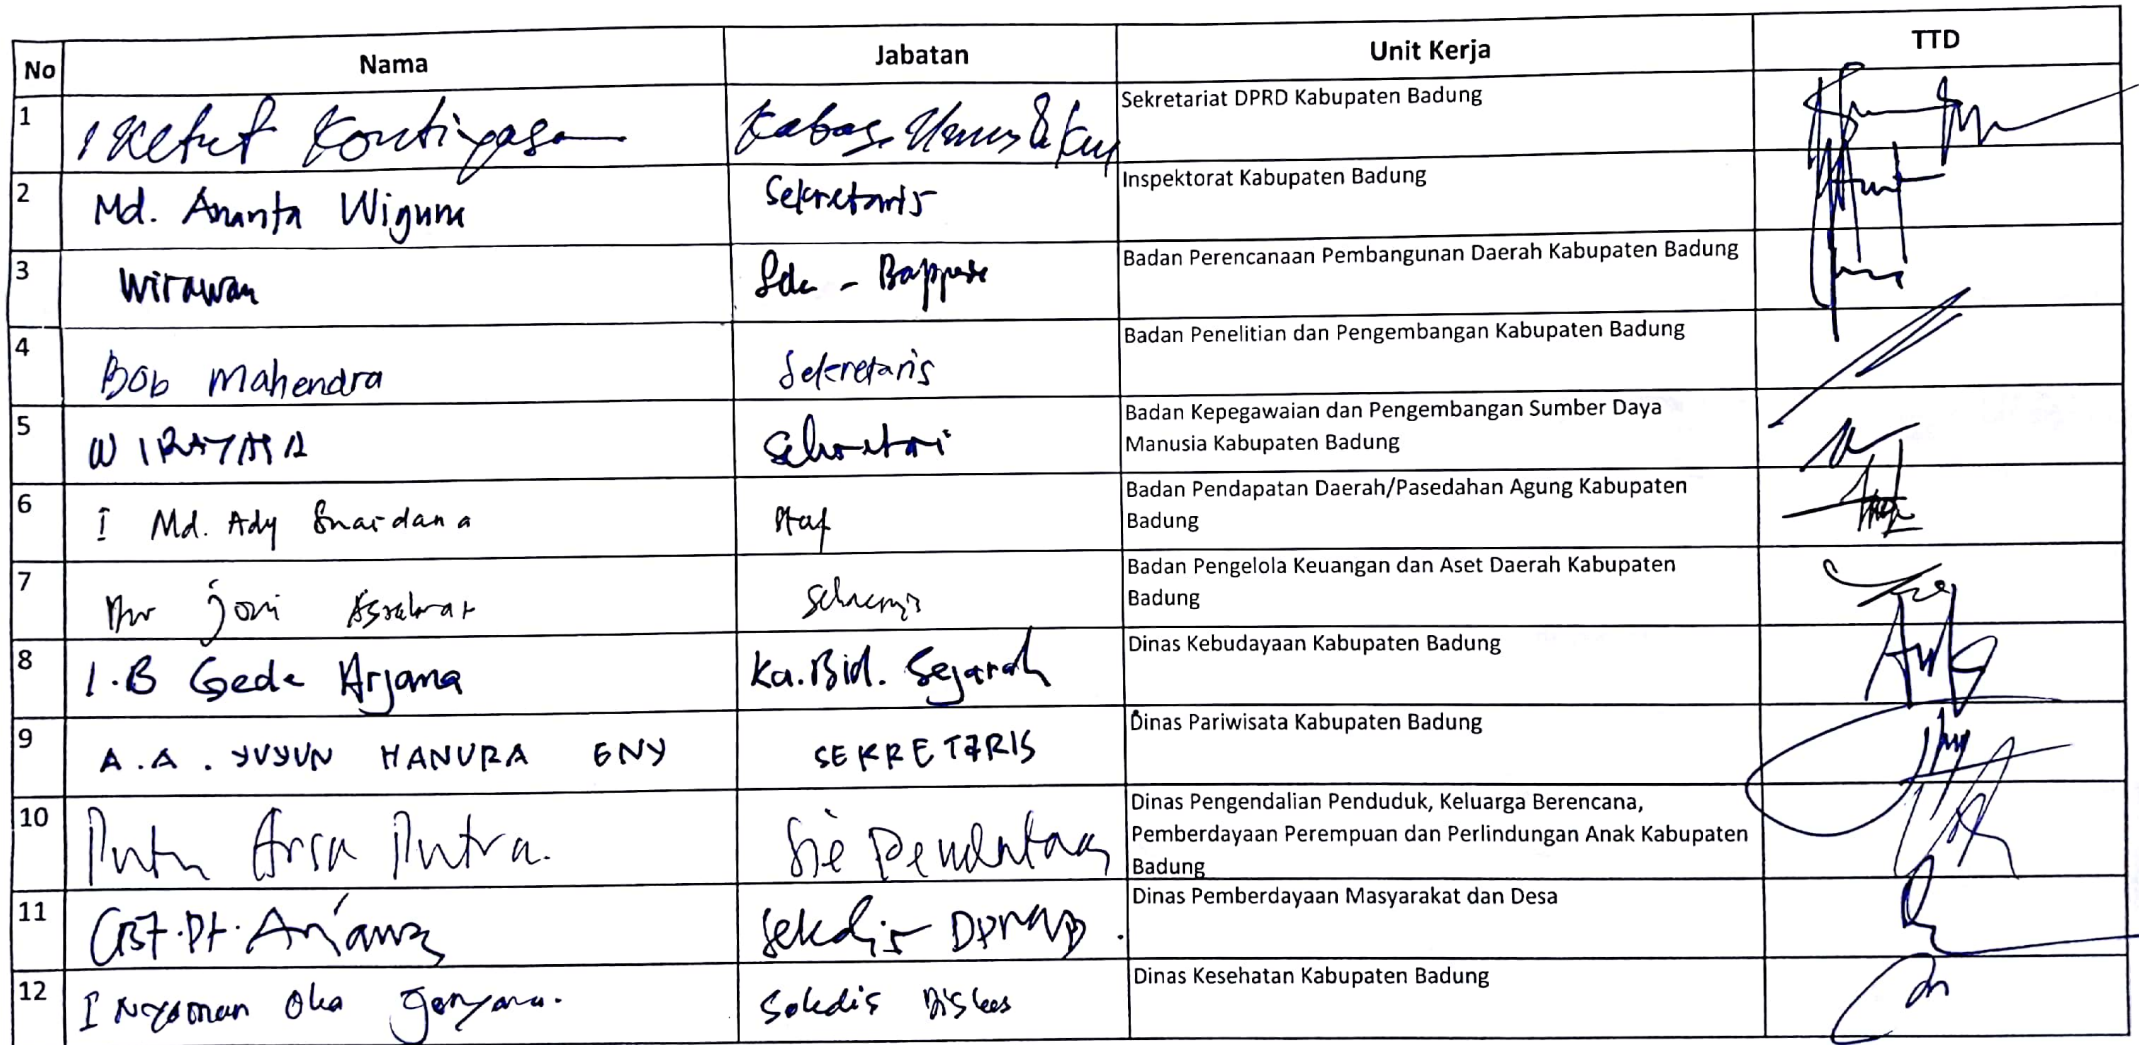 No Nama Jabatan Unit Kerja TTD
1 I Ketut Kabag. Umum & Keu Sekretariat DPRD Kabupaten Badung
2 Md. Ananta Wiguna Sekretaris Inspektorat Kabupaten Badung
3 Wirawan Badan Perencanaan Pembangunan Daerah Kabupaten Badung
4 Bob Mahendra Sekretaris Badan Penelitian dan Pengembangan Kabupaten Badung
5 WIRATAMA Sekretari Badan Kepegawaian dan Pengembangan Sumber Daya
Manusia Kabupaten Badung
6 I Md. Ady Staf Badan Pendapatan Daerah/Pasedahan Agung Kabupaten
Badung
7 joni Badan Pengelola Keuangan dan Aset Daerah Kabupaten
Badung
8 I.B Gede Arjana Ka.Bid. Sejarah Dinas Kebudayaan Kabupaten Badung
9 A.A. YUYUN HANURA ENY SEKRETARIS Dinas Pariwisata Kabupaten Badung
10 Putu Arsa Putra. Sie Pendataan Dinas Pengendalian Penduduk, Keluarga Berencana,
Pemberdayaan Perempuan dan Perlindungan Anak Kabupaten
Badung
11 Sekdis DPMD Dinas Pemberdayaan Masyarakat dan Desa
12 I Nyoman Oka Sekdis Diskes Dinas Kesehatan Kabupaten Badung